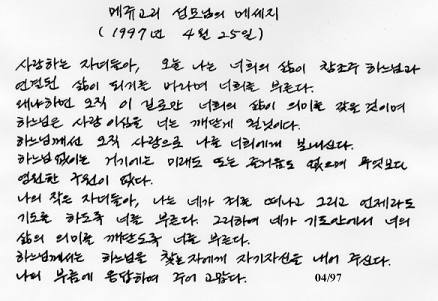 메쥬고리 성모님의 메세지
(1997년 4월 25일)
사랑하는 자녀들아, 오늘 나는 너희의 삶이 창조주 하느님과
연결된 삶이 되기를 바라며 너희를 부른다.
왜냐하면 오직 이 길로만 너희의 삶이 의미를 갖을 것이며
하느님은 사랑이심을 너는 깨닫게 될것이다.
하느님께선 오직 사랑으로 나를 너희에게 보내신다.
하느님 없이는 거기에는 미래도 또는 즐거움도 없으며 무엇보다
영원한 구원이 없다.
나의 작은 자녀들아, 나는 네가 죄를 떠나고 그리고 언제라도
기도를 하도록 너를 부른다. 그리하여 네가 기도안에서 너의
삶의 의미를 깨닫도록 너를 부른다.
하느님께서는 하느님을 찾는자에게 자기자신을 내어 주신다.
나의 부름에 응답하여 주어 고맙다. 04/97